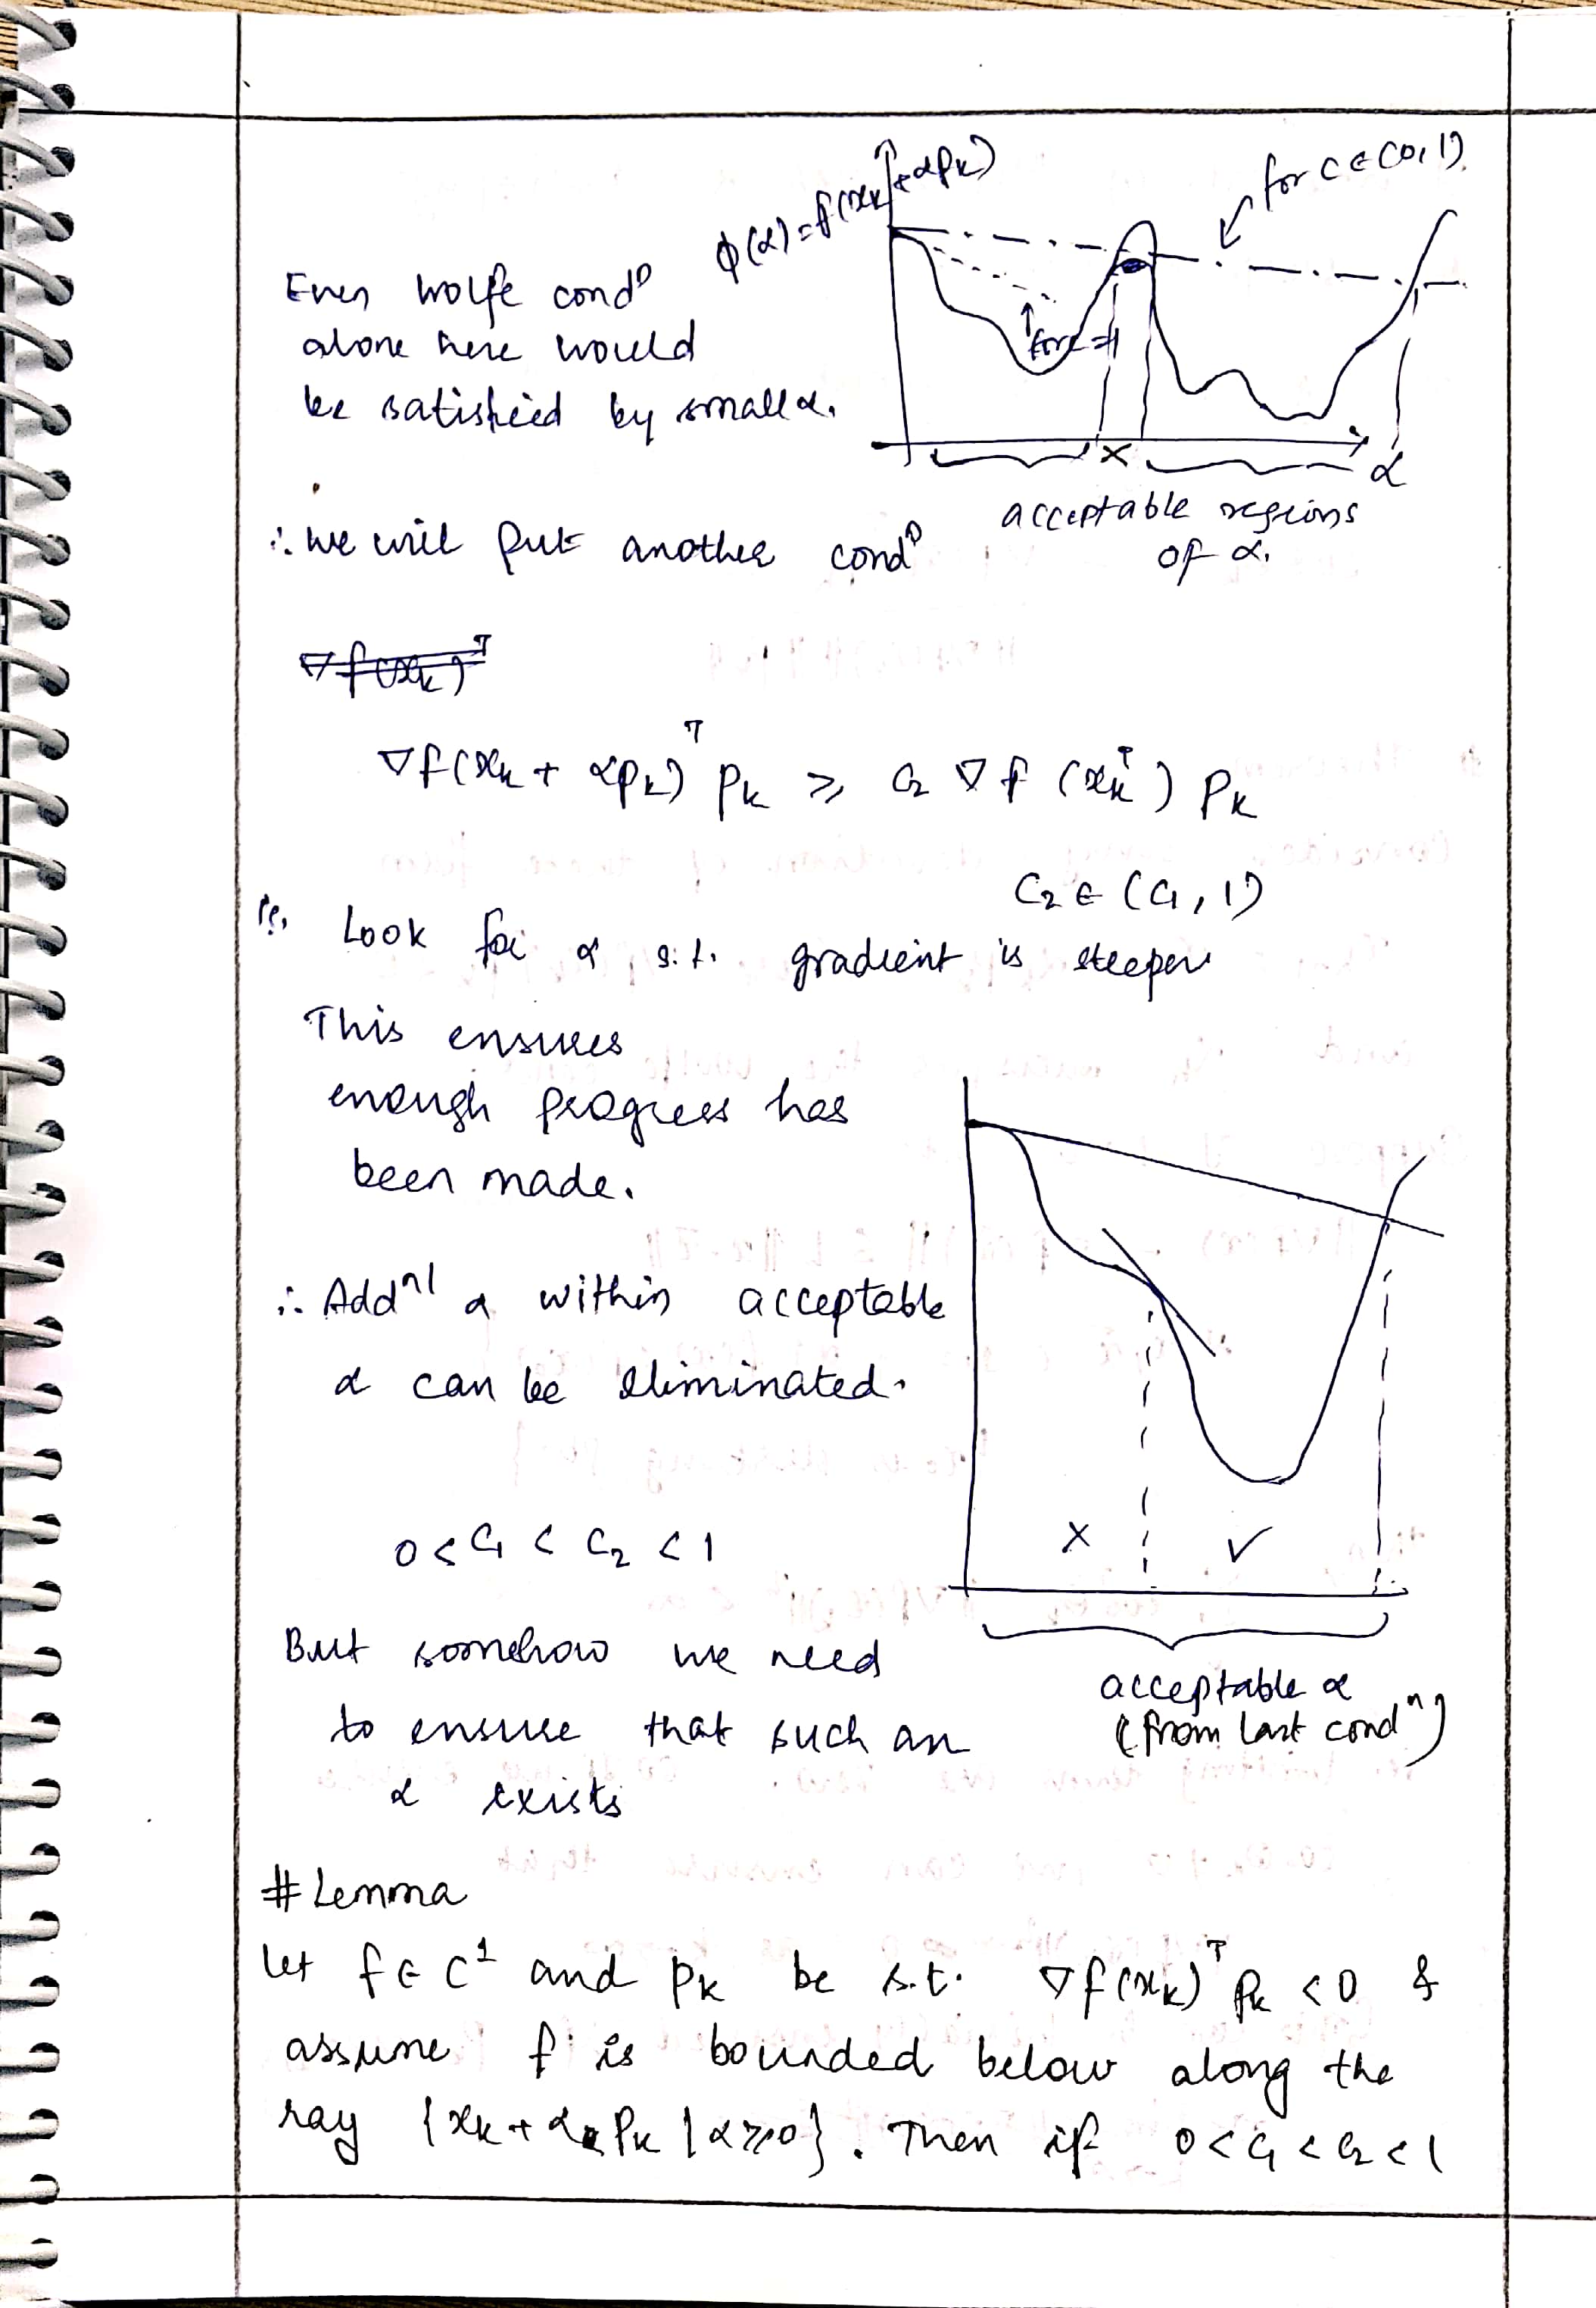 ϕ(α) = f(xₖ + αpₖ)
for c ∈ (0, 1)
Even Wolfe condⁿ
alone here would
be satisfied by small α.
for c = 1
X
α
acceptable regions
of α.
∴ We will put another condⁿ
∇f(xₖ)ᵀ
∇f(xₖ + αpₖ)ᵀ pₖ ⩾ c₂ ∇f(xₖᵀ) pₖ
c₂ ∈ (c₁, 1)
Look for α s.t. gradient is steeper
This ensures
enough progress has
been made.
∴ Addⁿˡ α within acceptable
α can be eliminated.
0 < c₁ < c₂ < 1
X ✓
But somehow we need
to ensure that such an
α exists
acceptable α
(from last condⁿ)
# Lemma
Let f ∈ C¹ and pₖ be s.t. ∇f(xₖ)ᵀ pₖ < 0 &
assume f is bounded below along the
ray {xₖ + αₖpₖ | α ⩾ 0}. Then if 0 < c₁ < c₂ < 1